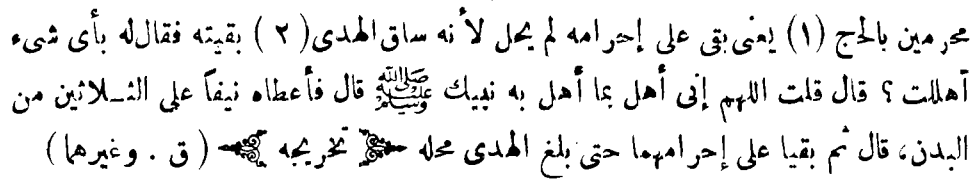 محرمين بالحج (١) يعنى بقى على إحرامه لم يحل لأنه ساق الهدى (٢) بقيته فقال له بأى شىء
أهللت ؟ قال قلت اللهم إنى أهل بما أهل به نبيك ﷺ قال فأعطاه نيفاً على الثلاثين من
البدن، قال ثم بقيا على إحرامهما حتى بلغ الهدى محله ﴿ تخريجه ﴾ (ق . وغيرهما)